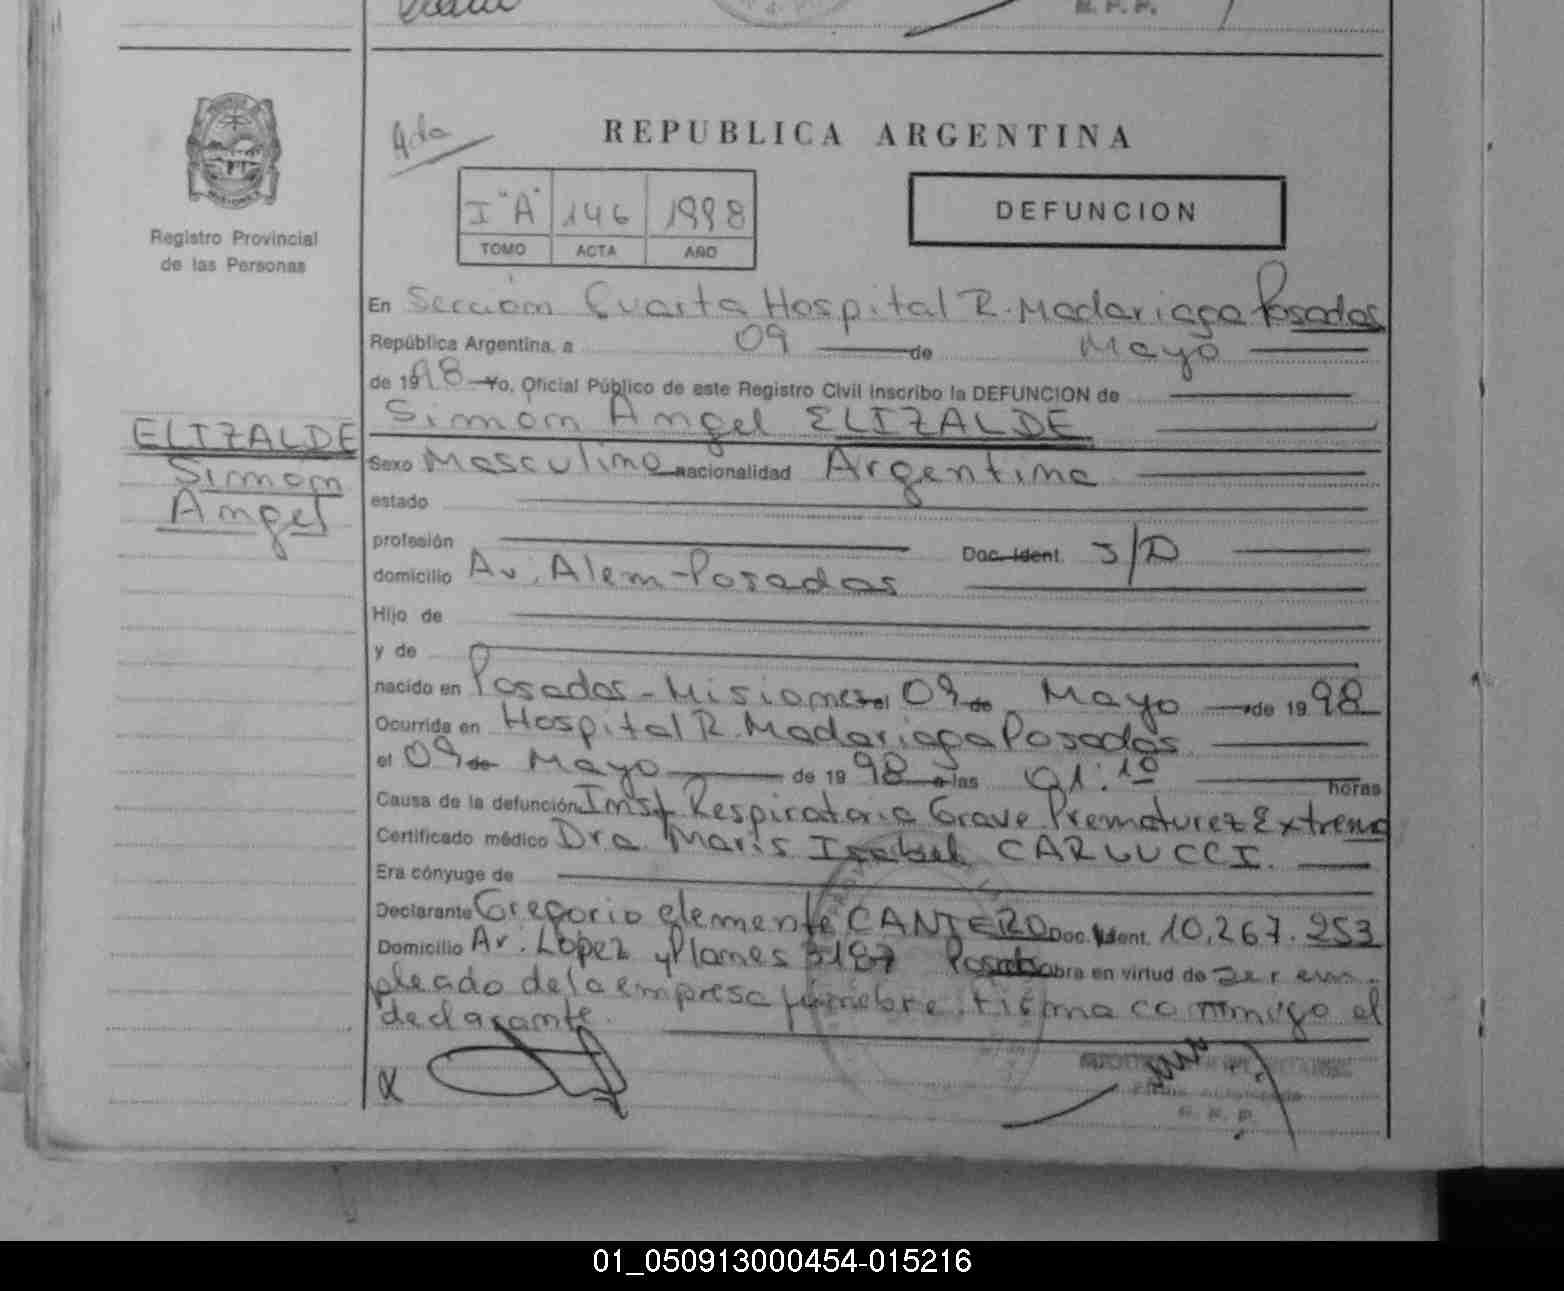 4da
REPUBLICA ARGENTINA
I "A" 146 1998
TOMO ACTA AÑO
DEFUNCION
Registro Provincial
de las Personas
En Sección Cuarta Hospital R. Madariaga Posadas
República Argentina, a 09 de Mayo
de 1998 Yo, Oficial Público de este Registro Civil inscribo la DEFUNCION de
Simón Angel ELIZALDE
ELIZALDE
Simón
Angel
Sexo Masculino nacionalidad Argentina
estado
profesión Doc. Ident. S/D
domicilio Av. Alem - Posadas
Hijo de
y de
nacido en Posadas - Misiones el 09 de Mayo de 1998
Ocurrida en Hospital R. Madariaga Posadas
el 09 de Mayo de 1998 a las 01:10 horas
Causa de la defunción Insf Respiratoria Grave Prematurez Extrema
Certificado médico Dra. Maris Isabel CARLUCCI.
Era cónyuge de
Declarante Gregorio clemente CANTERO Doc. Ident. 10.267.253
Domicilio Av. López y Planes 3187 Posadas obra en virtud de ser em-
pleado de la empresa fúnebre. firma conmigo el
declarante.
R. P. P.
01_050913000454-015216